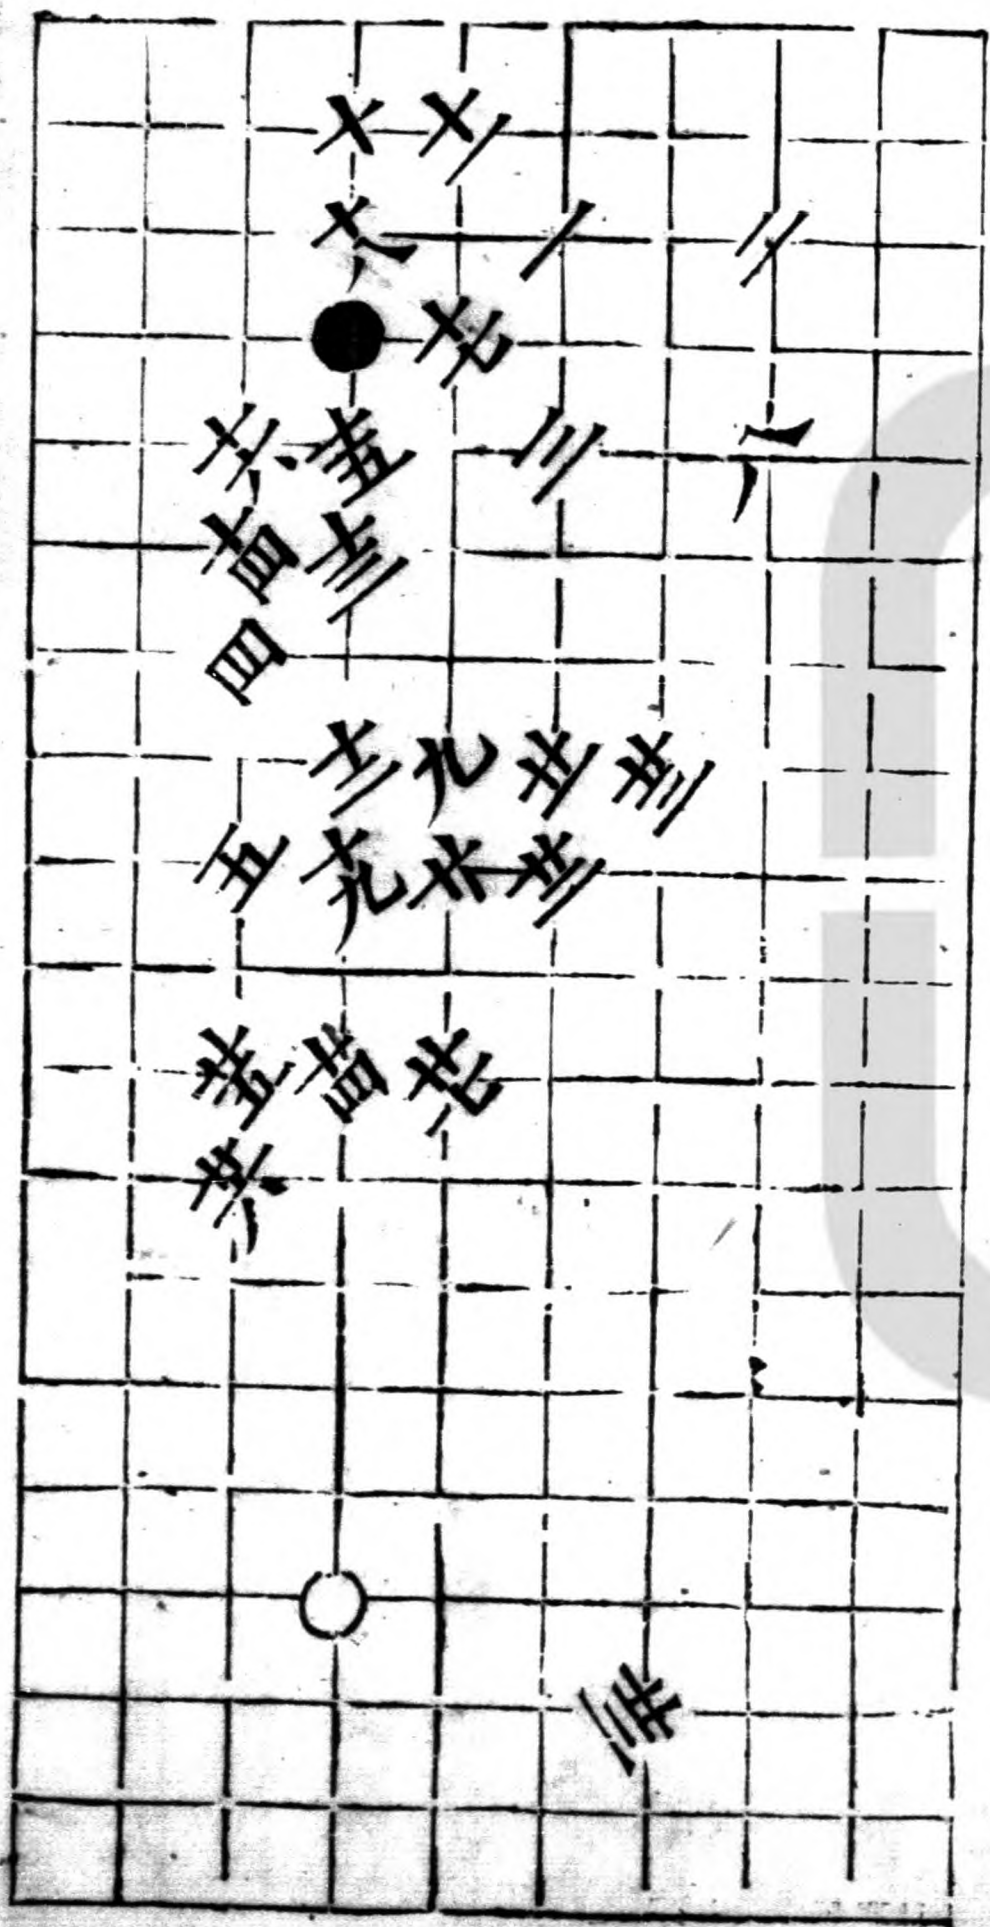 十 十一
十八 一 二
十七
十六 十五 三 八
十四 十三
四
十二 九 廿一 廿三
五 十九 廿 廿二
廿五 廿四 廿七
廿六